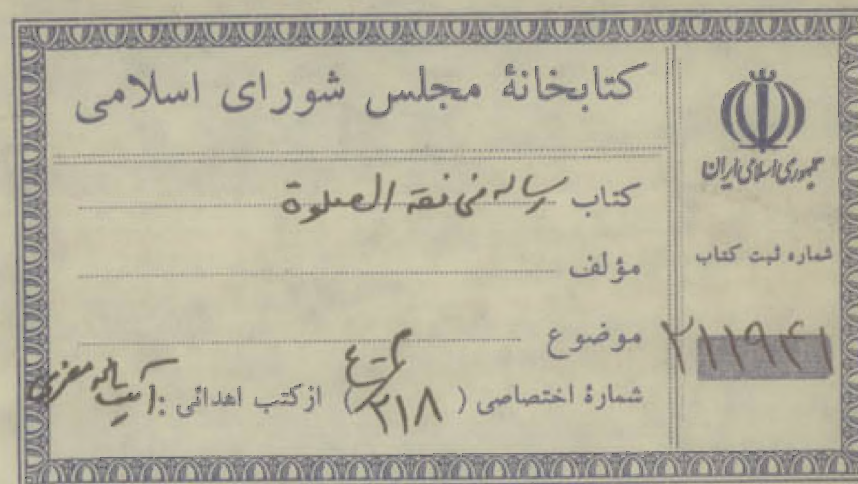 کتابخانهٔ مجلس شورای اسلامی
کتاب رساله فی فقه الصلوة
مؤلف
موضوع
شمارهٔ اختصاصی ( ۲۱۸ ) از کتب اهدائی :
جمهوری اسلامی ایران
شماره ثبت کتاب
۲۱۱۹۴۱